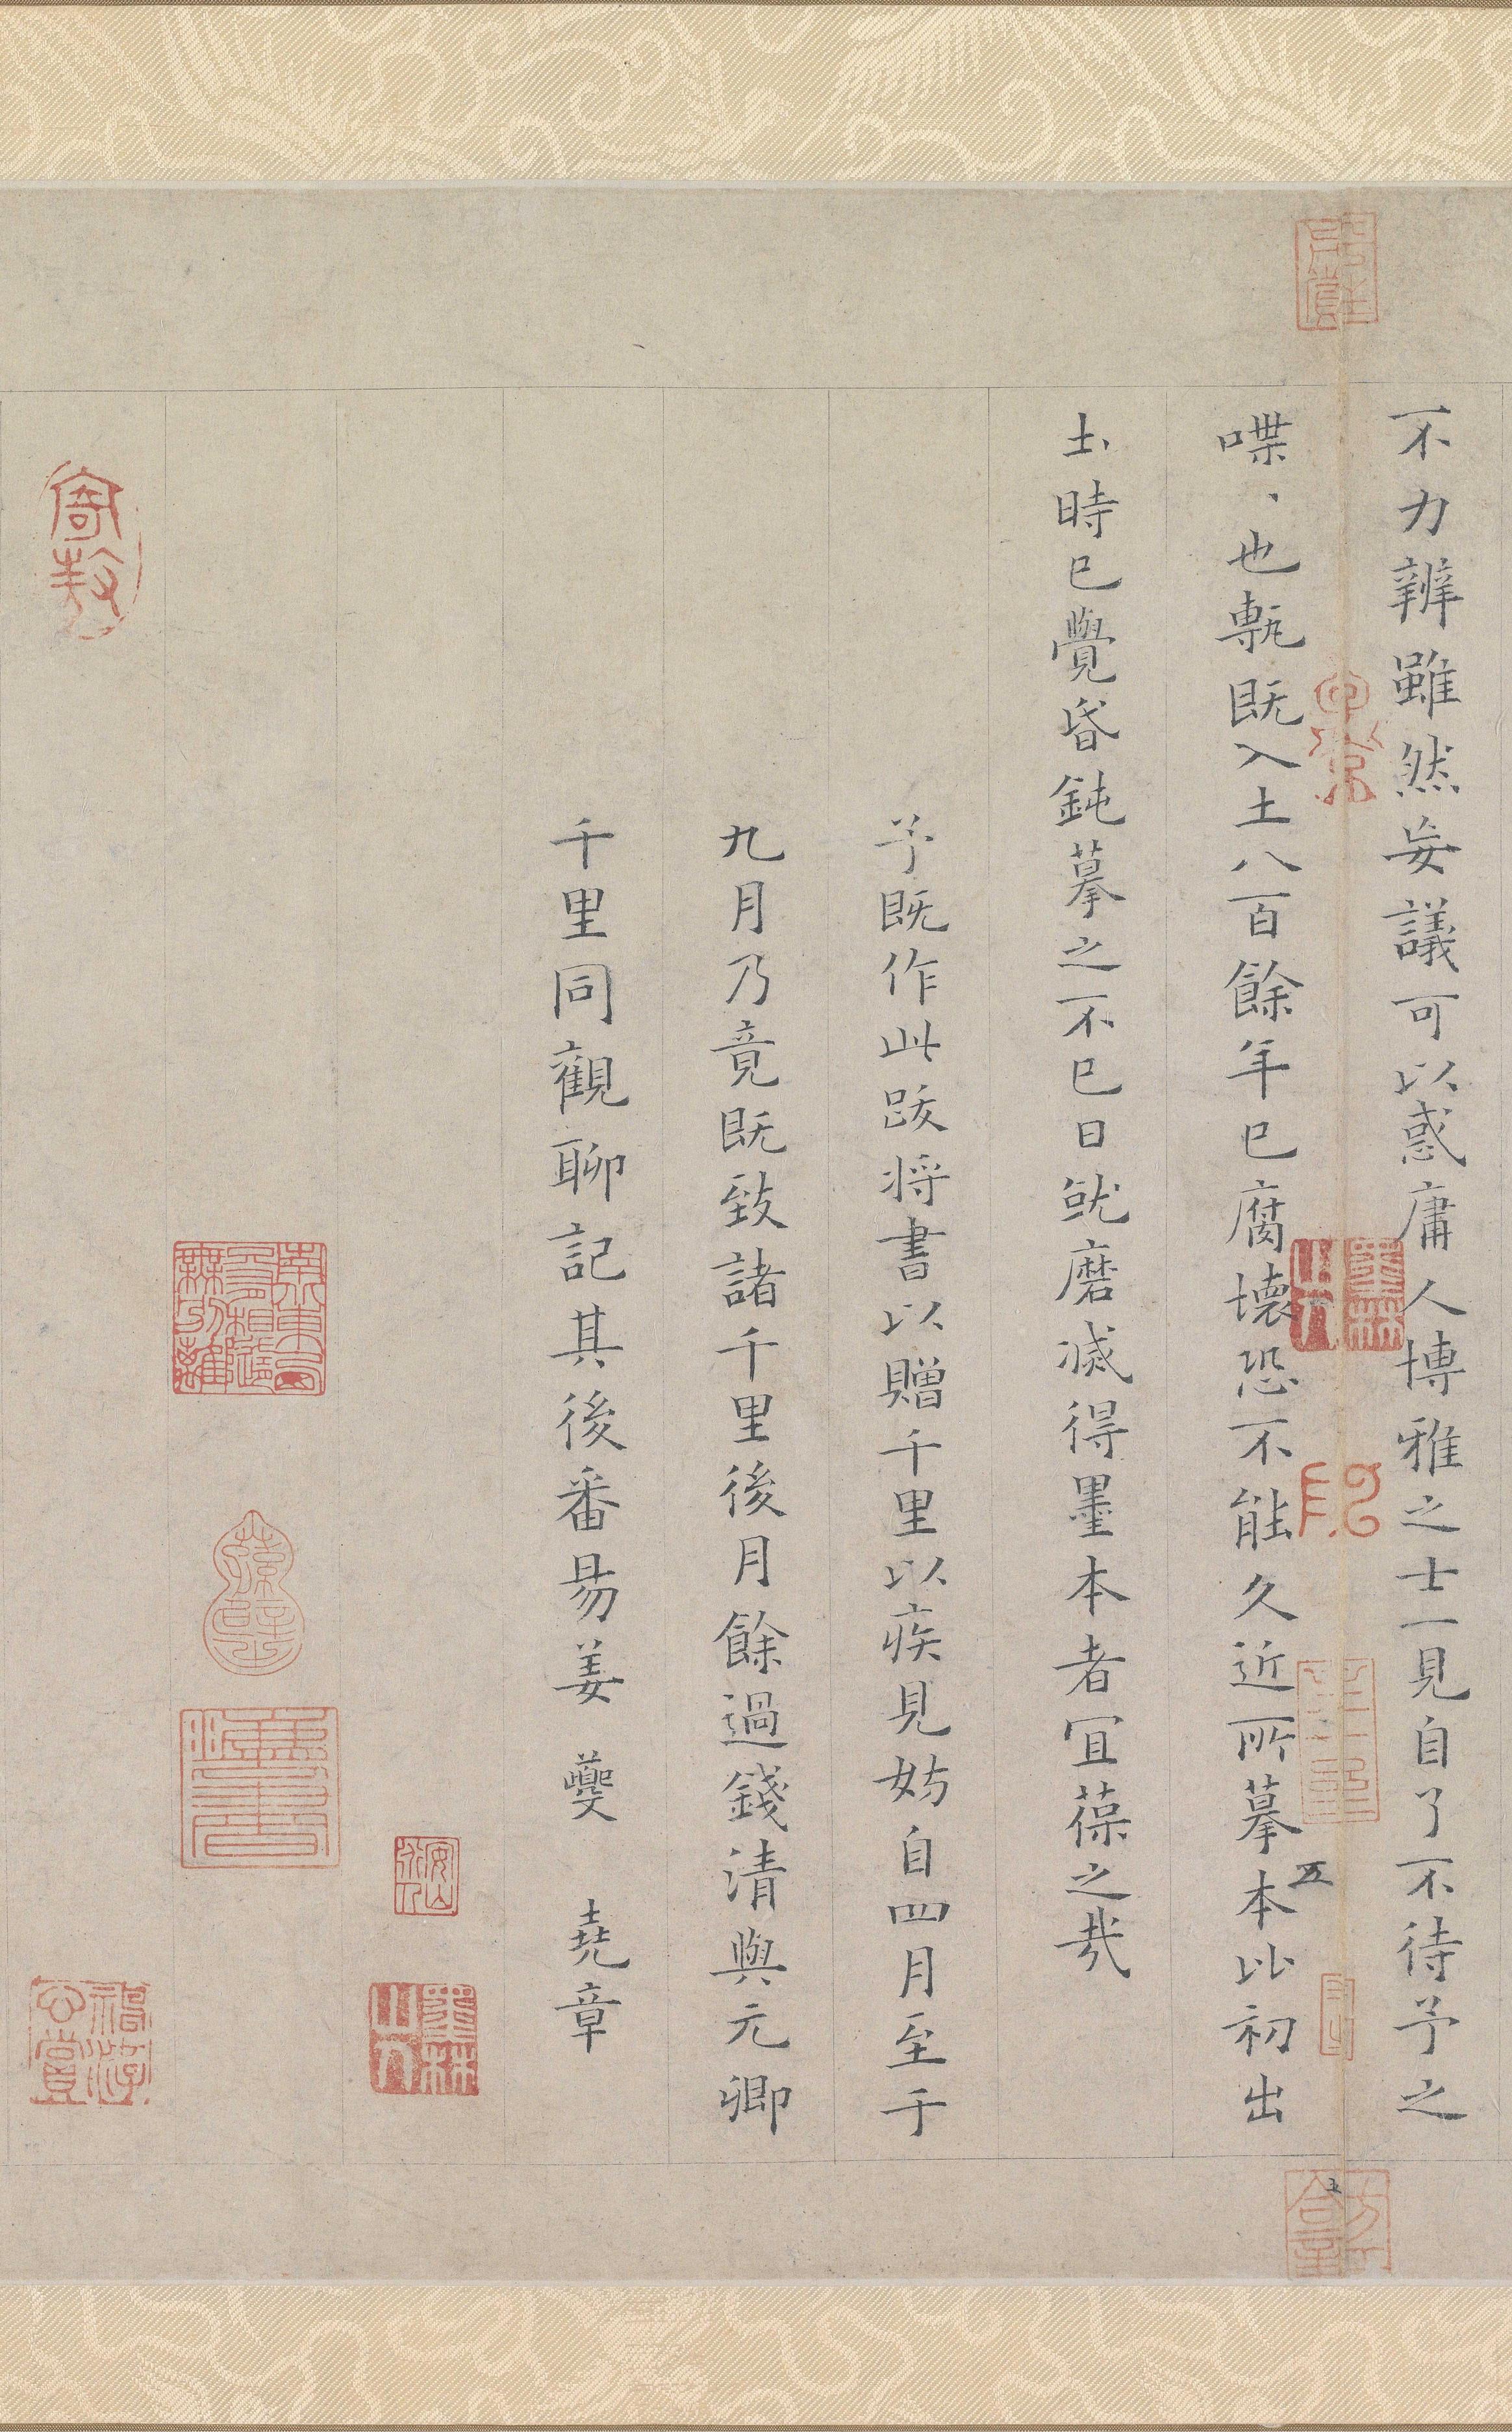 不力辨雖然妄議可以惑庸人博雅之士一見自了不待予之
喋、也甎既入土八百餘年已腐壞恐不能久近所摹本比初出
圡時已覺昏鈍摹之不已日就磨滅得墨本者宜葆之哉
予既作此跋将書以贈千里以疾見妨自四月至于
九月乃竟既致諸千里後月餘過錢清與元卿
千里同觀聊記其後番昜姜夔堯章
五